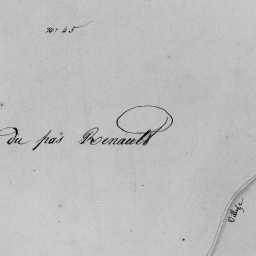 nº 45
du pas Renault
Village